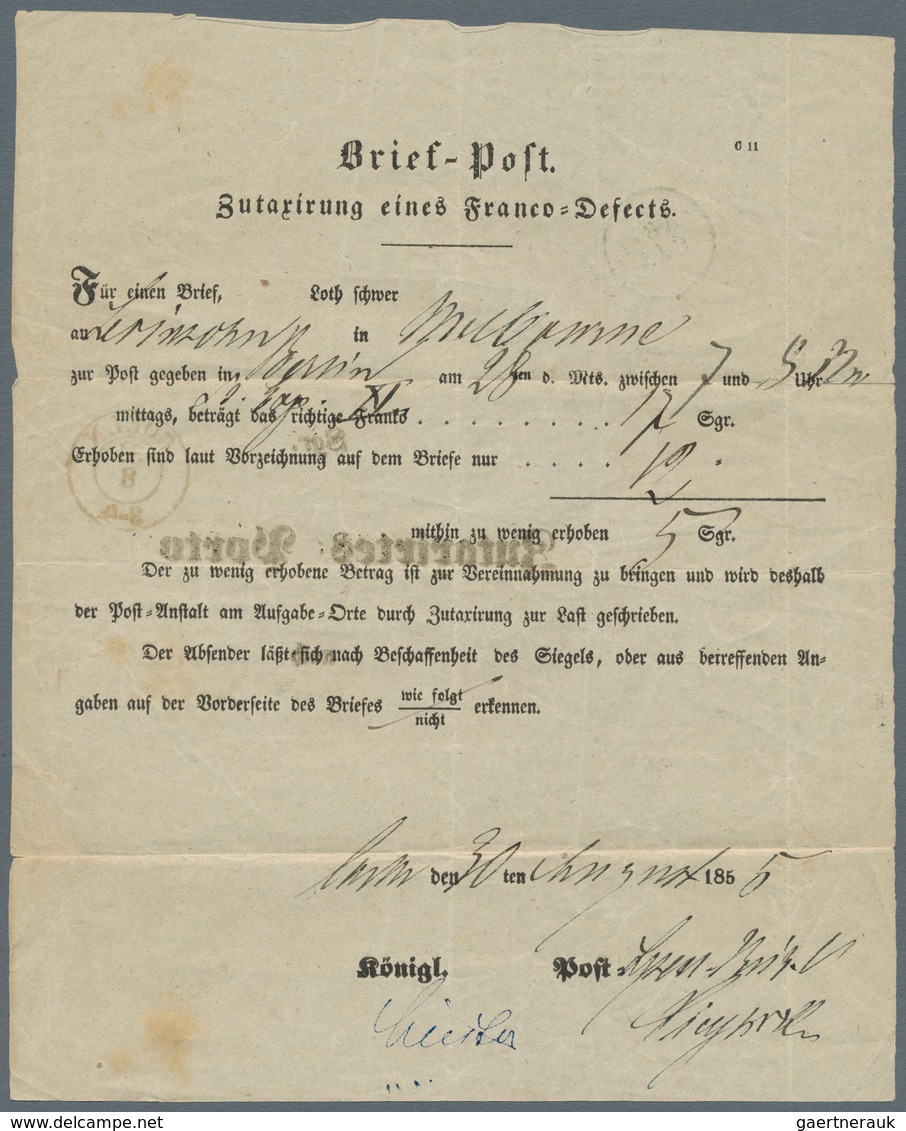 Brief-Post.
C 11
Zutaxirung eines Franco-Defects.
Für einen Brief, Loth schwer
an in Melbourne
zur Post gegeben in Berlin am 28 ten d. Mts. zwischen 7 und 8 Uhr
mittags, beträgt das richtige Franko . . . . . . . . . 17 Sgr.
Erhoben sind laut Vorzeichnung auf dem Briefe nur . . . . 12 "
mithin zu wenig erhoben 5 Sgr.
Zutaxirtes Porto
Der zu wenig erhobene Betrag ist zur Vereinnahmung zu bringen und wird deshalb
der Post-Anstalt am Aufgabe-Orte durch Zutaxirung zur Last geschrieben.
Der Absender läßt sich nach Beschaffenheit des Siegels, oder aus betreffenden An-
gaben auf der Vorderseite des Briefes wie folgt
nicht erkennen.
den 30 ten August 1855
Königl. Post-
gaertnerauk